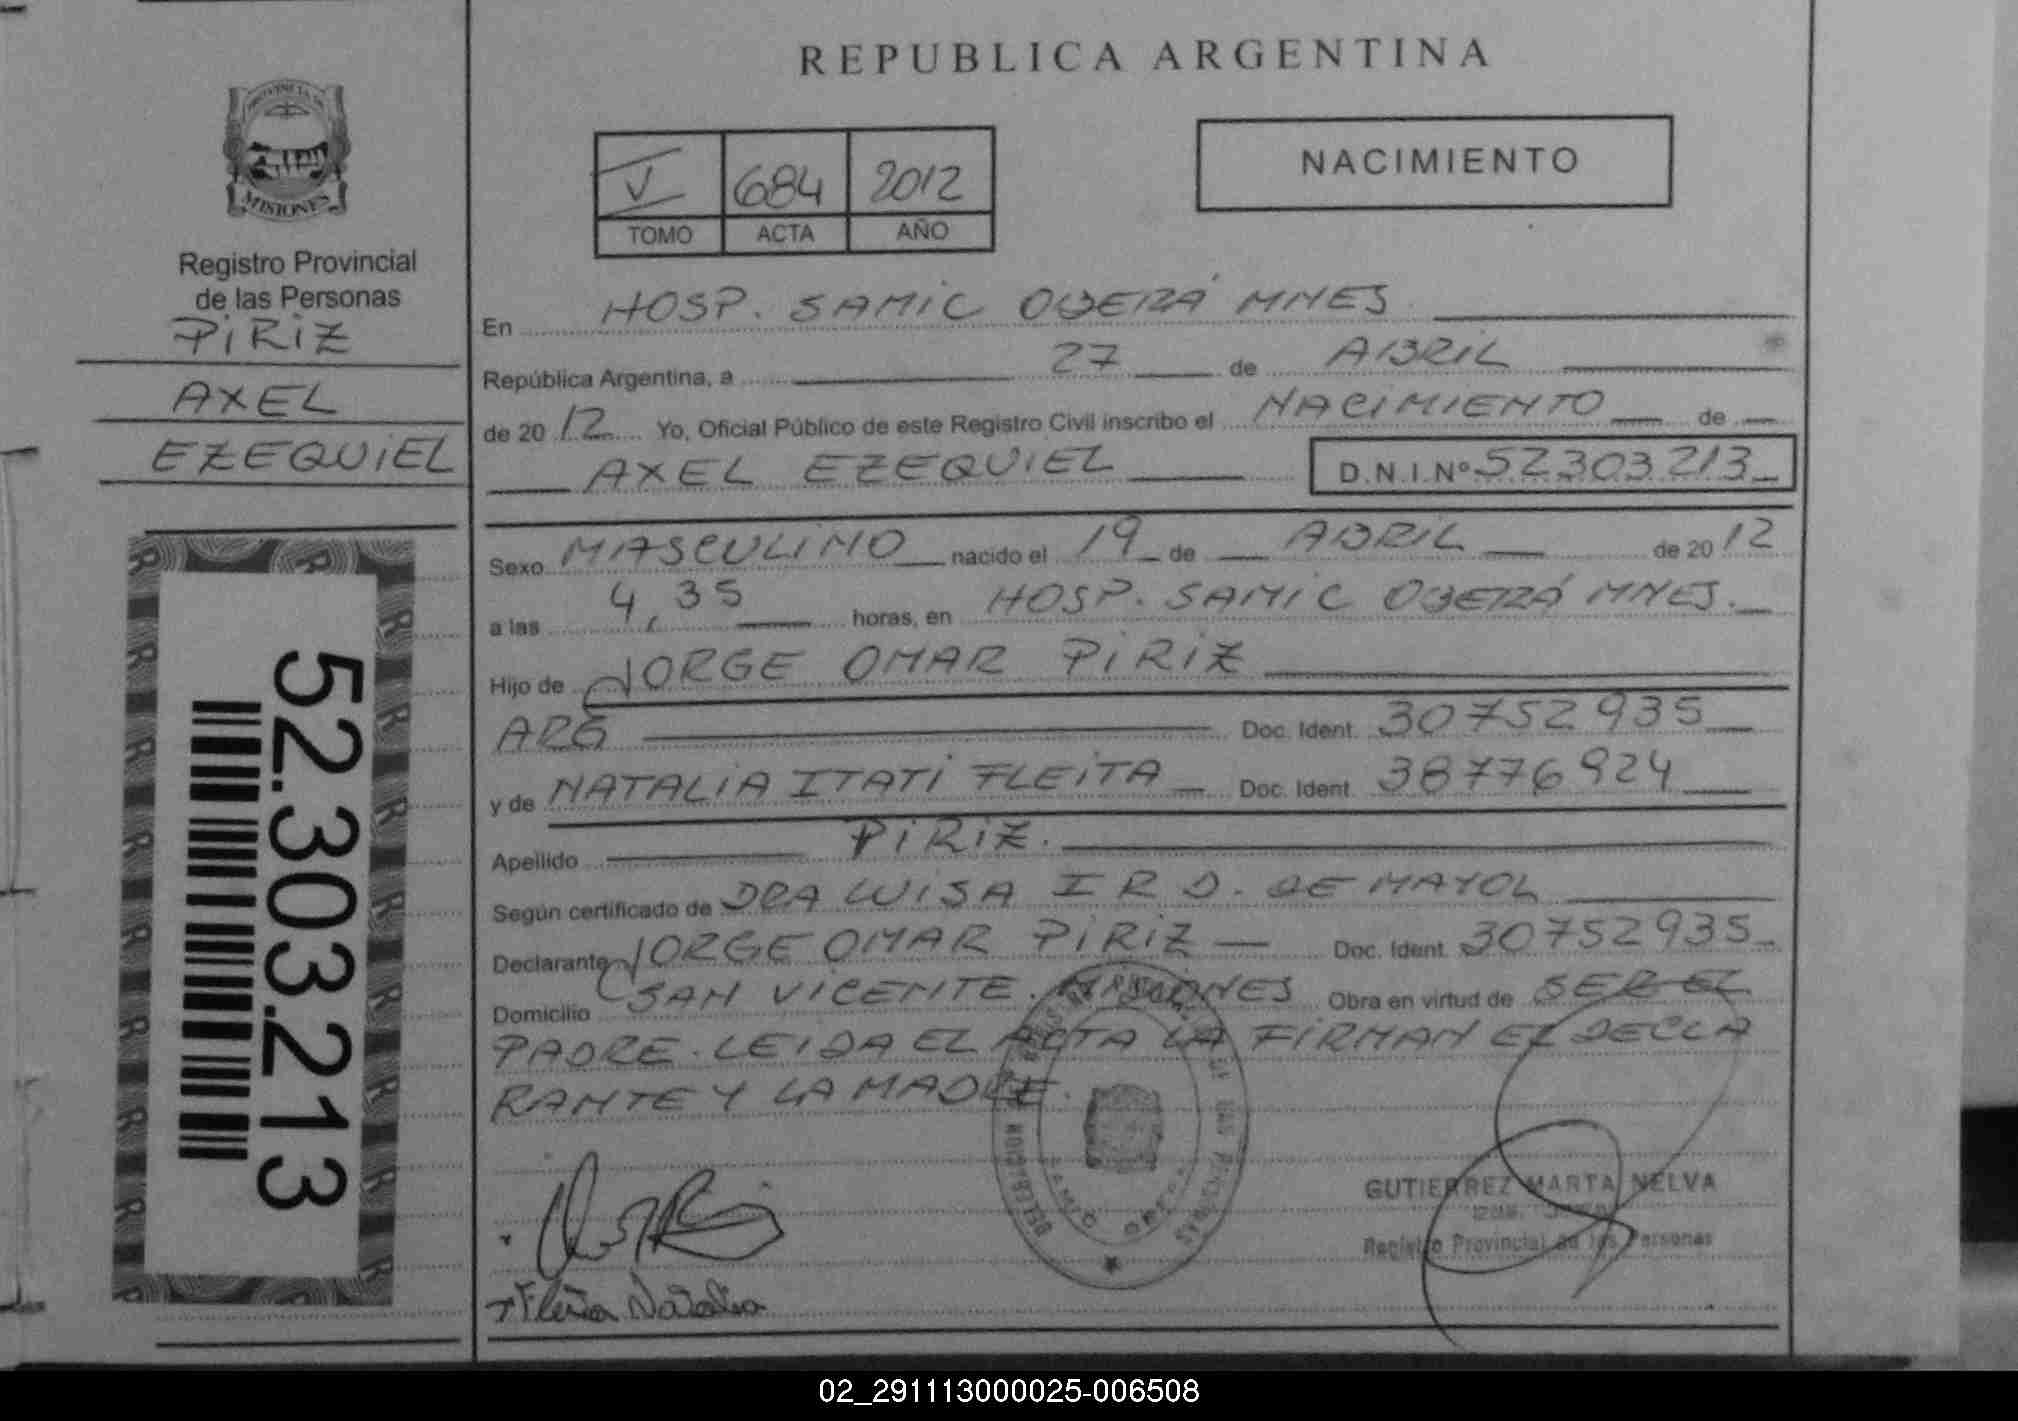 REPUBLICA ARGENTINA
PROVINCIA DE
MISIONES
Registro Provincial
de las Personas
PIRIZ
AXEL
EZEQUIEL
52.303.213
V 684 2012
TOMO ACTA AÑO
NACIMIENTO
En HOSP. SAMIC OBERÁ MNES
República Argentina, a 27 de ABRIL
de 20 12 Yo, Oficial Público de este Registro Civil inscribo el NACIMIENTO de
AXEL EZEQUIEL D.N.I.Nº 52303213
Sexo MASCULINO nacido el 19 de ABRIL de 20 12
a las 4,35 horas, en HOSP. SAMIC OBERÁ MNES.
Hijo de JORGE OMAR PIRIZ
ARG Doc. Ident. 30752935
y de NATALIA ITATI FLEITA Doc. Ident. 38776924
Apellido PIRIZ.
Según certificado de DRA LUISA I R D. DE MAYOL
Declarante JORGE OMAR PIRIZ Doc. Ident. 30752935
Domicilio SAN VICENTE. MISIONES Obra en virtud de SER EL
PADRE. LEIDA EL ACTA LA FIRMAN EL DECLA
RANTE Y LA MADRE.
GUTIERREZ MARTA NELVA
Registro Provincial de las Personas
Fleita Natalia
02_291113000025-006508